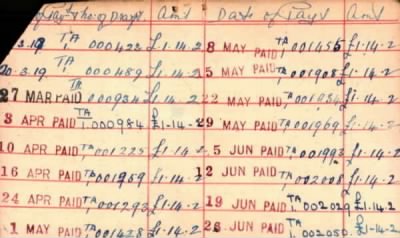 of Pay't No: of Draft. Am't Date of Pay't Am't
3.19 TA/1 000423 £1-14-2 8 MAY PAID TA/1 001455 £1-14-2
20.3.19 TA/1 000489 £1-14-2 15 MAY PAID TA/1 001908 £1-14-2
27 MAR PAID TA/1 000934 £1-14-2 22 MAY PAID TA/1 £1-14-2
3 APR PAID TA/1 000984 £1-14-2 29 MAY PAID TA/1 001969 £1-14-2
10 APR PAID TA/1 001225 £1-14-2 5 JUN PAID TA/1 001993 £1-14-2
16 APR PAID TA/1 001259 £1-14-2 12 JUN PAID TA/1 002008 £1-14-2
24 APR PAID TA/1 001293 £1-14-2 19 JUN PAID TA/1 002029 £1-14-2
1 MAY PAID TA/1 001428 £1-14-2 26 JUN PAID TA/1 002050 £1-14-2